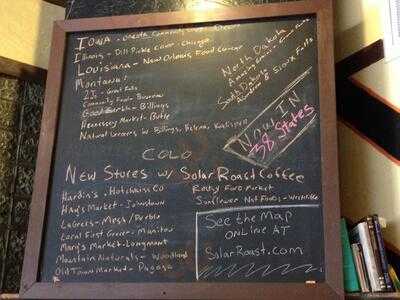 IOWA - Oneota Community
Illinois - Dill Pickle - Chicago
Louisiana - New Orleans Food Co-op
Montana!
2J's - Great Falls
Community Food - Bozeman
Good Earth - Billings
Hennessey Market - Butte
Natural Grocers - Billings, Helena, Kalispell
North Dakota
South Dakota
Sioux Falls
Now IN
38 States
COLO
New Stores w/ SolarRoast Coffee
Hardin's - Hotchkiss CO
Hay's Market - Johnstown
LaGree's - Mesa / Pueblo
Local First Grocer - Manitou
Mary's Market - Longmont
Mountain Naturals - Woodland
Old Town Market - Pagosa
Food Market
Sunflower Nat Foods - Westcliffe
See the Map
ONLINE AT
SolarRoast.com